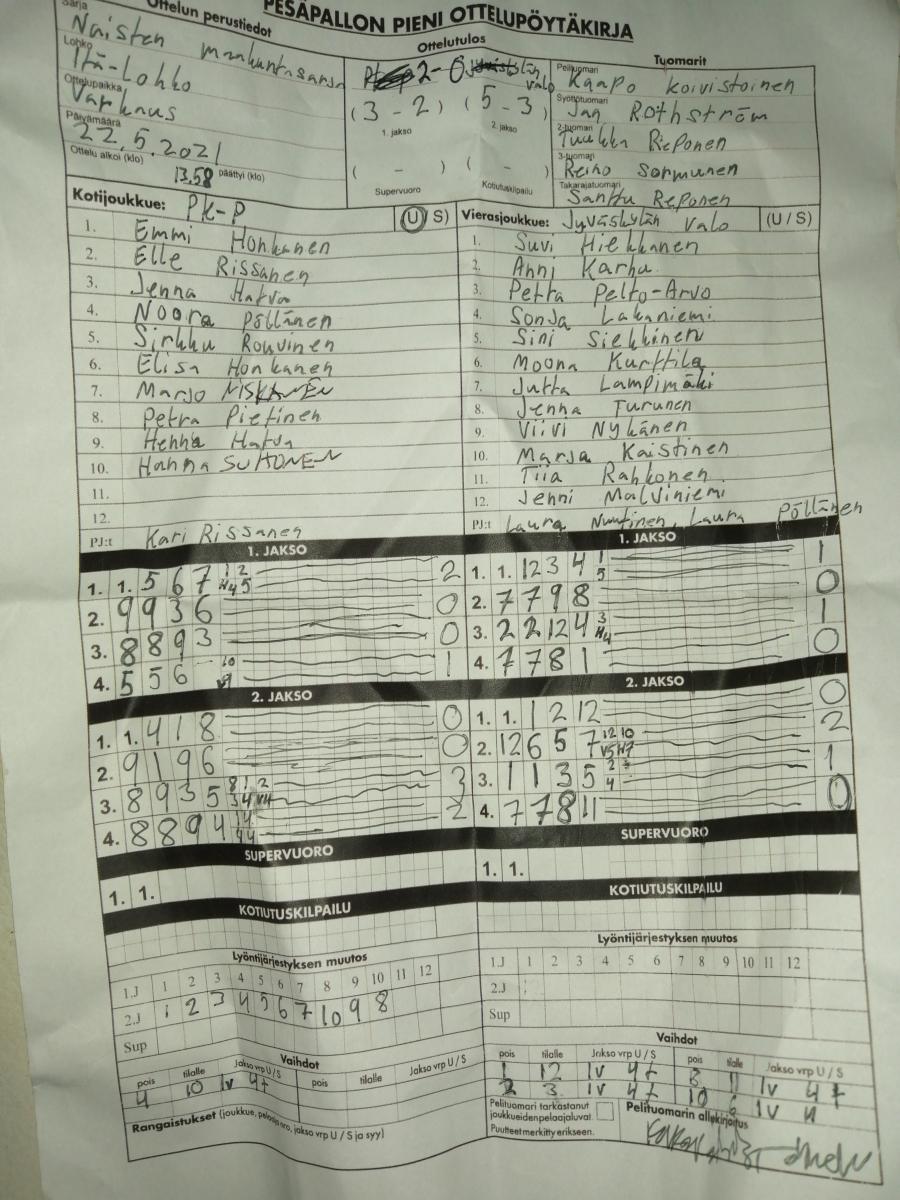 PESÄPALLON PIENI OTTELUPÖYTÄKIRJA
Sarja
Ottelun perustiedot
Naisten maakuntasarja
Lohko
Itä-Lohko
Ottelupaikka
Varkaus
Päivämäärä
22.5.2021
Ottelu alkoi (klo) 13.58 päättyi (klo)
Ottelutulos
2-0 valo
(3 - 2) (5 - 3)
1. jakso 2. jakso
( - ) ( - )
Supervuoro Kotiutuskilpailu
Tuomarit
Pelituomari
Kaapo Koivistoinen
Syöttötuomari
Jan Rothström
2-tuomari
Tuukka Reponen
3-tuomari
Reino Sormunen
Takarajatuomari
Santtu Reponen
Kotijoukkue: PK-P (U S)
1. Emmi Honkanen
2. Elle Rissanen
3. Jenna Hatva
4. Noora Pöllänen
5. Sirkku Rouvinen
6. Elisa Honkanen
7. Marjo NISKANEN
8. Petra Pietinen
9. Henna Hatva
10. Hanna SUTONEN
11.
12.
PJ:t Kari Rissanen
Vierasjoukkue: Jyväskylän Valo (U / S)
1. Suvi Hiekkanen
2. Anni Karhu
3. Petra Pelto-Arvo
4. Sonja Lakaniemi
5. Sini Siekkinen
6. Moona Kurttila
7. Jutta Lampimäki
8. Jenna Turunen
9. Viivi Nykänen
10. Marja Kaistinen
11. Tiia Rahkonen
12. Jenni Malviniemi
PJ:t Laura Nuutinen, Laura Pöllänen
1. JAKSO
1. 1. 5 6 7 2
2. 9 9 3 6 0
3. 8 8 9 3 0
4. 5 5 6 1
2. JAKSO
1. 1. 4 1 8 0
2. 9 1 9 6 0
3. 8 9 3 5 3
4. 8 8 9 4 2
SUPERVUORO
1. 1.
KOTIUTUSKILPAILU
1. JAKSO
1. 1. 12 3 4 1
2. 7 7 9 8 0
3. 2 2 12 4 1
4. 7 7 8 1 0
2. JAKSO
1. 1. 1 2 12 0
2. 12 6 5 7 2
3. 1 1 3 5 1
4. 7 7 8 11 0
SUPERVUORO
1. 1.
KOTIUTUSKILPAILU
Lyöntijärjestyksen muutos
1.J 1 2 3 4 5 6 7 8 9 10 11 12
2.J 1 2 3 4 5 6 7 10 9 8
Sup
Vaihdot
pois tilalle Jakso vrp U / S pois tilalle Jakso vrp U / S
4 10 Iv 4+
Rangaistukset (joukkue, pelaaja nro, jakso vrp U / S ja syy)
Lyöntijärjestyksen muutos
1.J 1 2 3 4 5 6 7 8 9 10 11 12
2.J
Sup
Vaihdot
pois tilalle Jakso vrp U / S pois tilalle Jakso vrp U / S
1 12 Iv 4+ 8 11 Iv 4+
2 3 Iv 4+ 10 6 Iv 4
Pelituomari tarkastanut
joukkueidenpelaajaluvat.
Puutteet merkitty erikseen.
Pelituomarin allekirjoitus